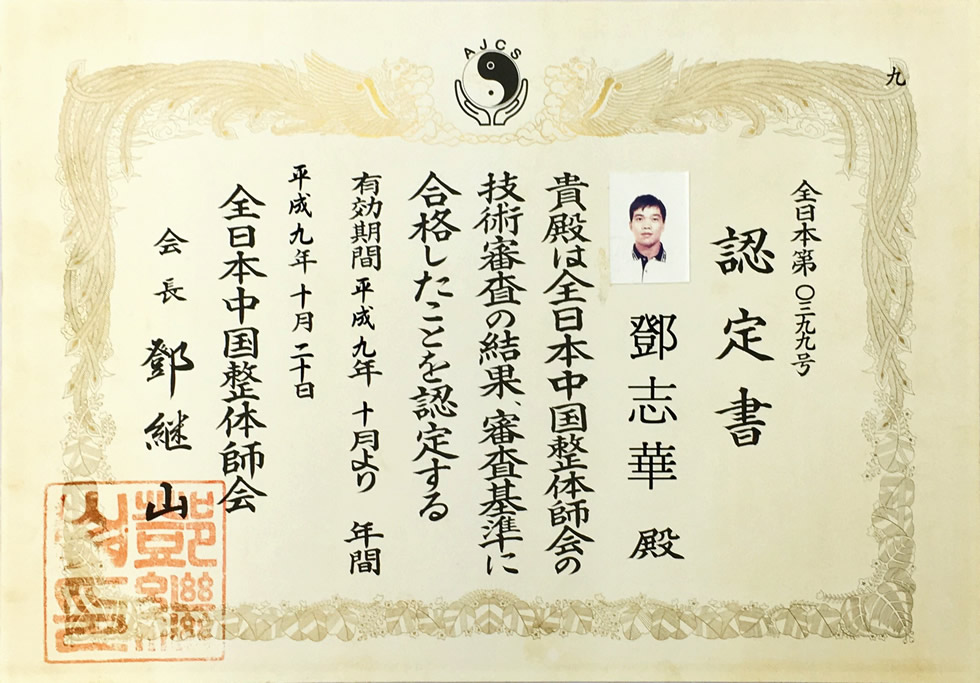 AJCS
九
全日本第〇三九九号
認定書
鄧志華 殿
貴殿は全日本中国整体師会の
技術審査の結果、審査基準に
合格したことを認定する
有効期間平成九年 十月より 年間
平成九年十月二十日
全日本中国整体師会
会長 鄧継山
鄧繼
山印